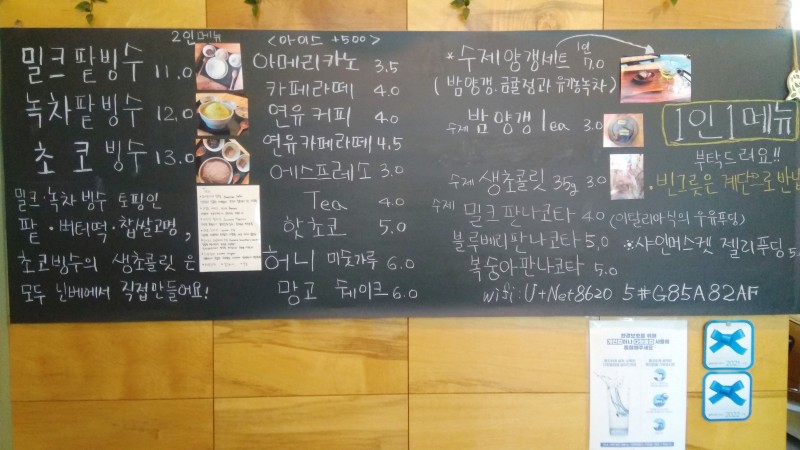 2인메뉴
밀크팥빙수 11.0
녹차팥빙수 12.0
초코빙수 13.0
밀크·녹차 빙수 토핑인
팥·버터떡·찹쌀고명,
초코빙수의 생초콜릿은
모두 닌베에서 직접만들어요!
<아이스 +500>
아메리카노 3.5
카페라떼 4.0
연유커피 4.0
연유카페라떼 4.5
에스프레소 3.0
Tea 4.0
핫초코 5.0
허니 미숫가루 6.0
망고 쉐이크 6.0
*수제양갱세트 1인 7.0
수제 밤양갱 1ea 3.0
수제 생초콜릿 35g 3.0
수제 밀크판나코타 4.0 (이탈리아식의 우유푸딩)
블루베리판나코타 5.0
복숭아판나코타 5.0
샤인머스켓 젤리푸딩 5.
wifi: U+Net8620 5#G85A82AF
1인1메뉴
부탁드려요!!
·빈그릇은 계단으로 반납